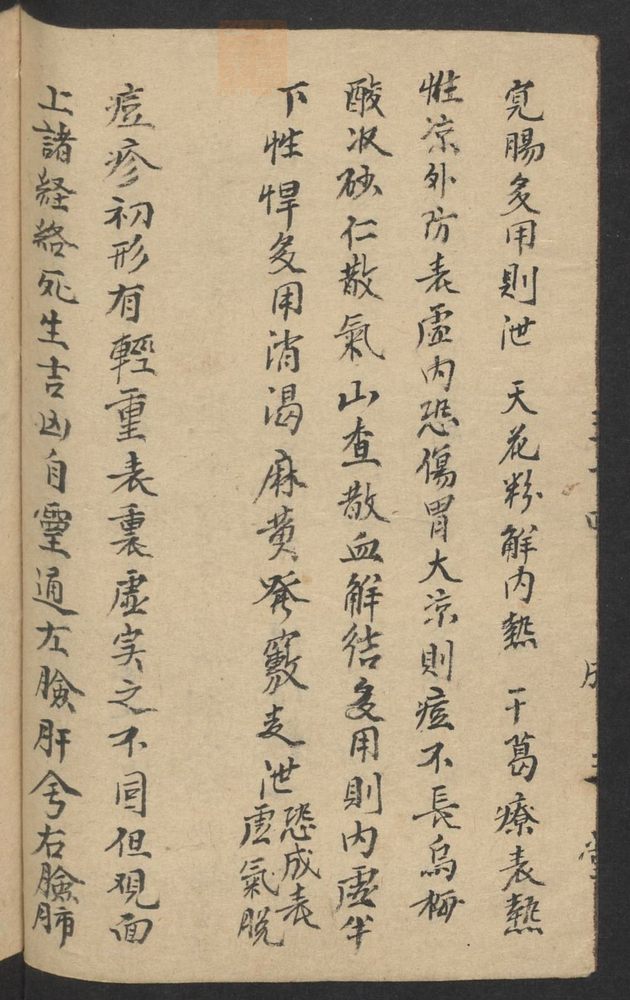 寛腸多用則泄 天花粉解内熱 干葛療表熱
性凉外防表虛内恐傷胃大凉則痘不長烏梅
酸收砂仁散氣山查散血解結多用則内虛半
下性悍多用消渴 麻黄發竅走泄恐成表虛氣脱
痘疹初形有輕重表裏虛实之不同但观面
上諸経絡死生吉凶自靈通左臉肝兮右臉肺